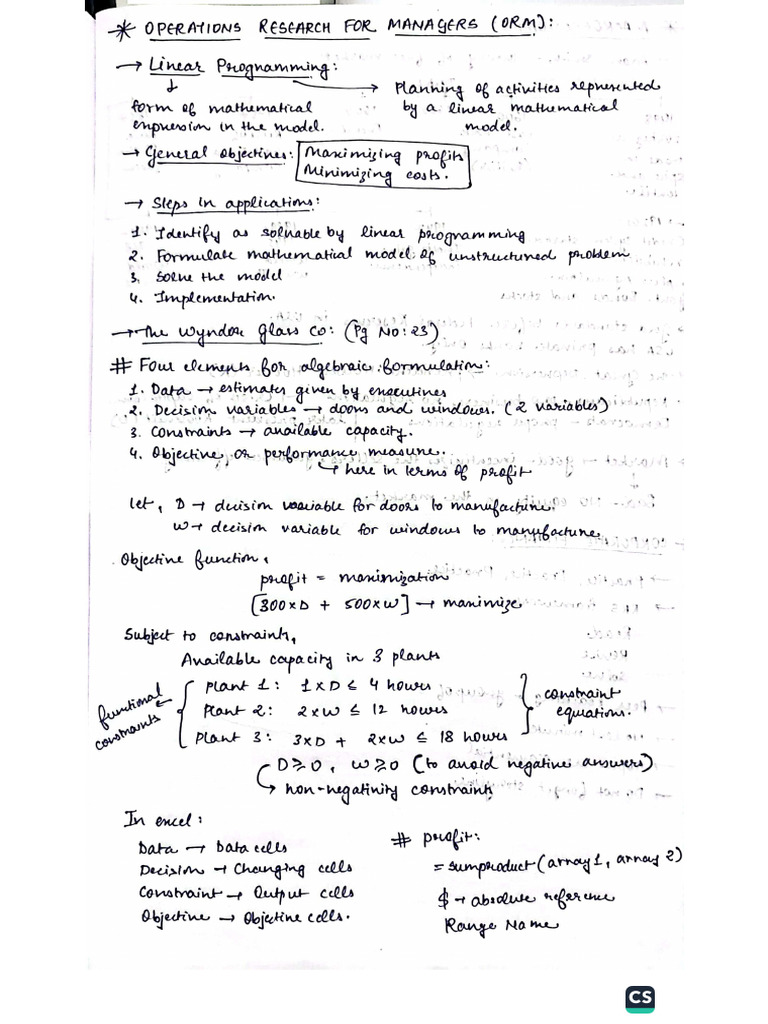 * OPERATIONS RESEARCH FOR MANAGERS (ORM):
→ Linear Programming:
→ Planning of activities represented by a linear mathematical model.
↓ form of mathematical expression in the model.
→ General objectives: Maximizing profits
Minimizing costs.
→ Steps in applications:
1. Identify as solvable by linear programming
2. Formulate mathematical model of unstructured problem
3. Solve the model
4. Implementation.
→ The Wyndor Glass Co: (Pg No: 23)
# Four elements for algebraic formulation:
1. Data → estimates given by executives
2. Decision variables → doors and windows. (2 variables)
3. Constraints → available capacity.
4. Objective, or performance measure.
↳ here in terms of profit
let, D → decision variable for doors to manufacture.
W → decision variable for windows to manufacture.
Objective function,
profit = maximization
[300×D + 500×W] → maximize
Subject to constraints,
Available capacity in 3 plants
functional constraints
Plant 1: 1×D ≤ 4 hours
Plant 2: 2×W ≤ 12 hours
Plant 3: 3×D + 2×W ≤ 18 hours
constraint equations.
D≥0, W≥0 (to avoid negative answers)
↳ non-negativity constraints
In excel:
Data → Data cells
Decision → Changing cells
Constraint → Output cells
Objective → Objective cells.
# Profit:
= sumproduct (array 1, array 2)
$ → absolute reference
Range Name
CS